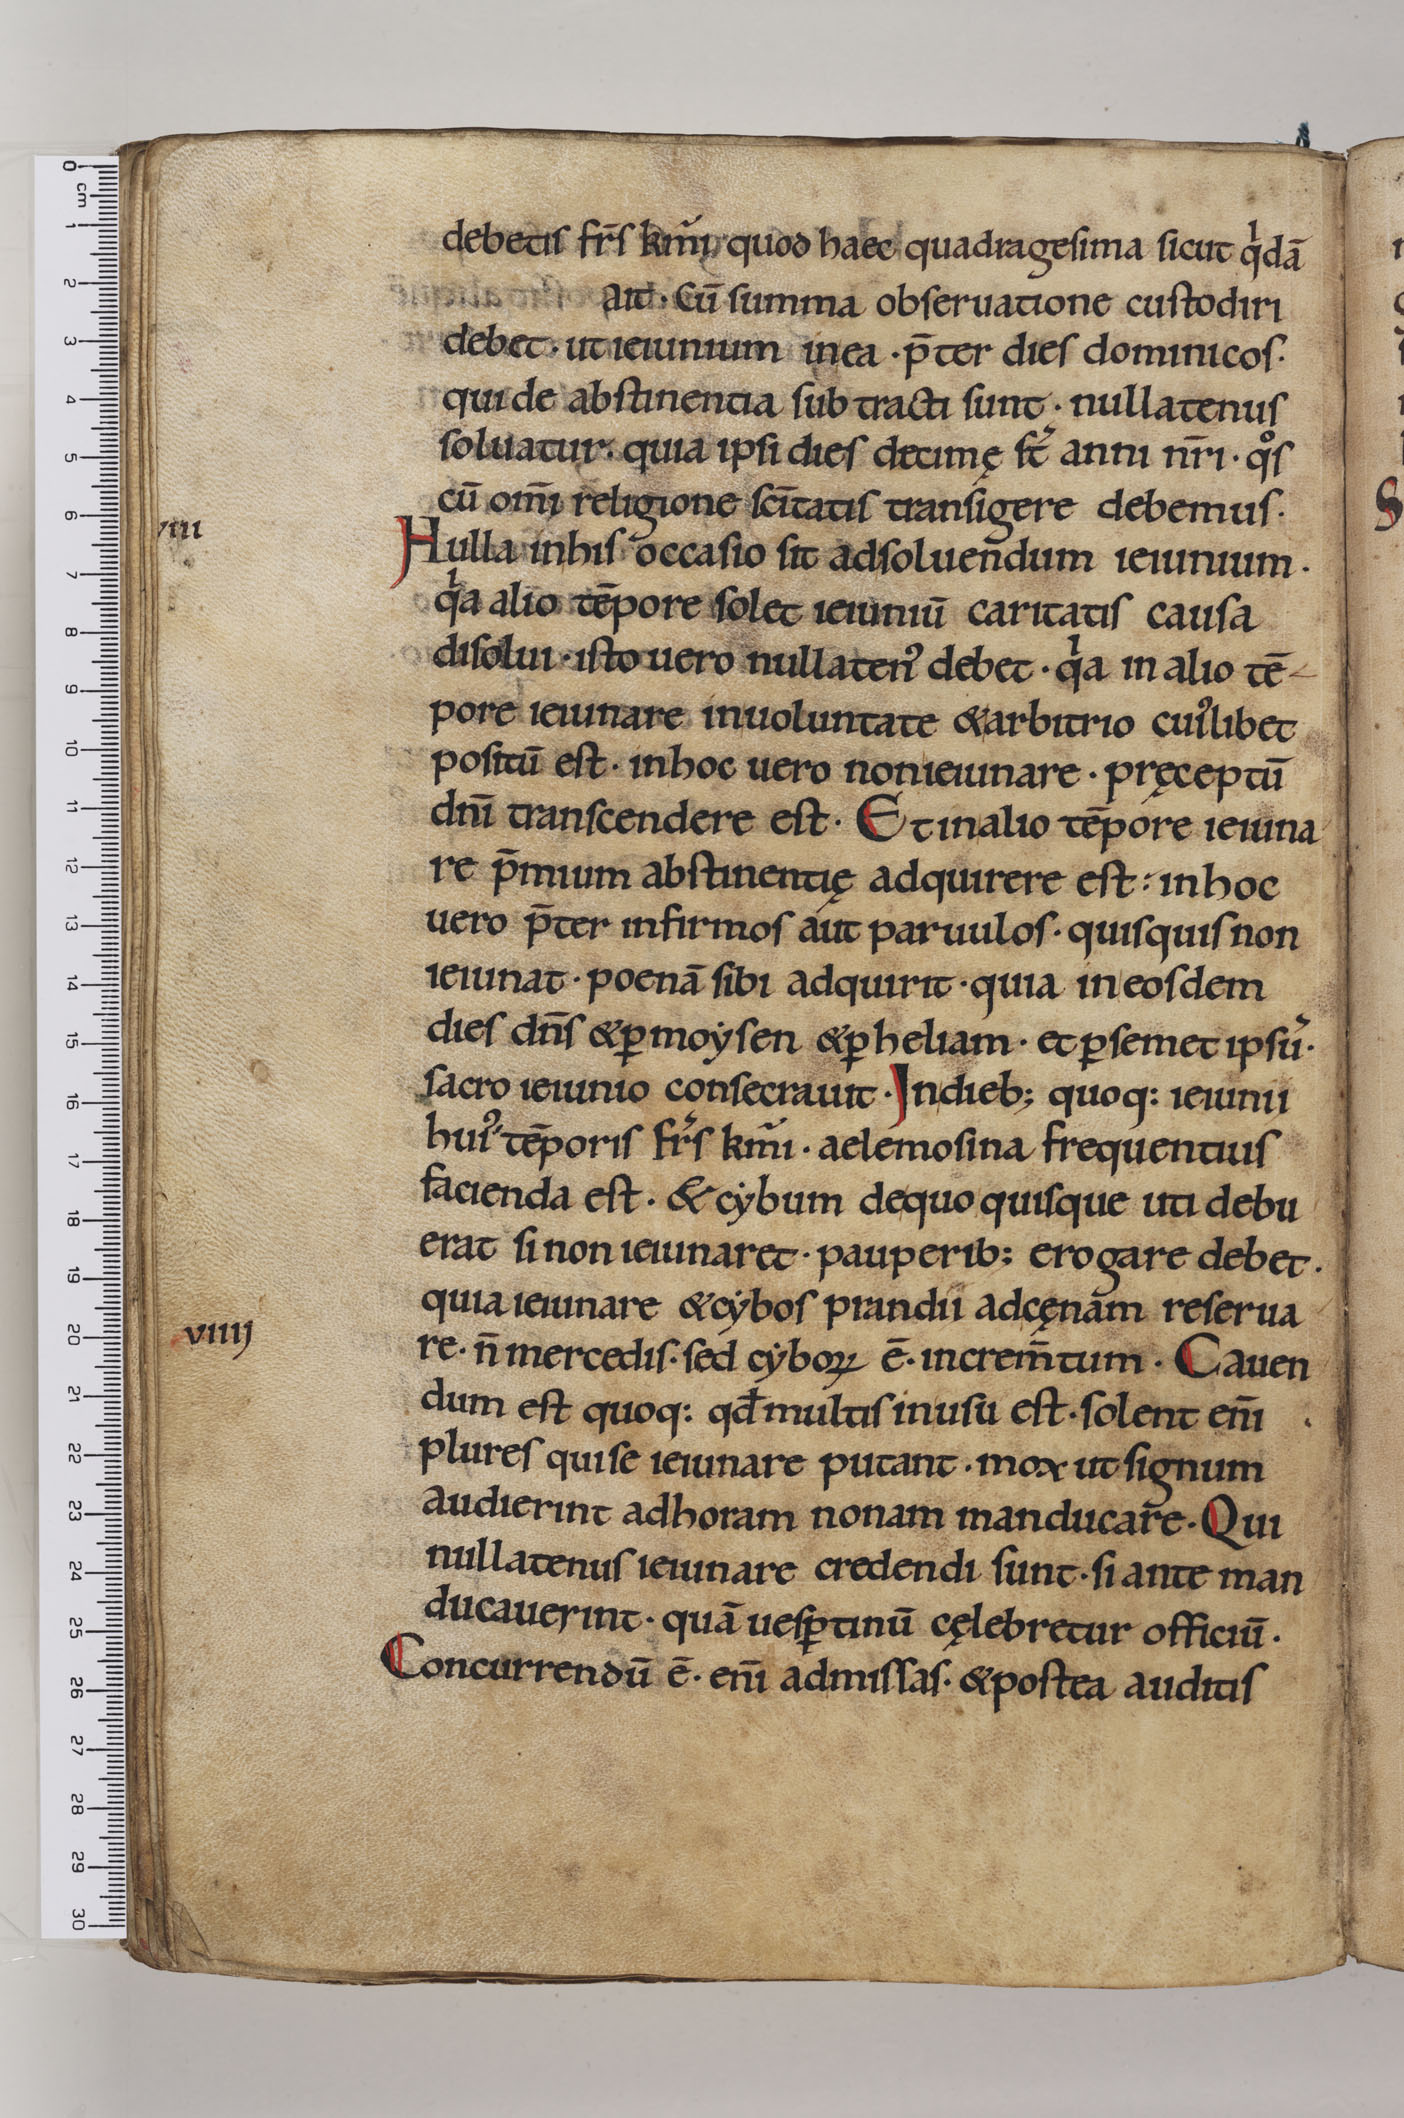 debetis fr̄s km̄i, quod haec quadragesima sicut qͥdā
ait · Cū summa obseruatione custodiri
debet · ut ieiunium in ea · p̄ter dies dominicos ·
qui de abstinentia sub tracti sunt · nullatenus
soluatur · quia ipsi dies decimę st̄ anni nr̄i · qͦs
cū om̄i religione sc̄itatis transigere debemus ·
viii
Nulla in his occasio sit ad soluendum ieiunium ·
qͥa alio tēpore solet ieiuniū caritatis causa
disolui · isto uero nullaten᾽ debet · qͥa in alio tē
pore ieiunare in uoluntate & arbitrio cui᾽libet
positū est · in hoc uero non ieiunare · pręceptū
dn̄i transcendere est · Et in alio tēpore ieiuna
re p̄mium abstinentię adquirere est : in hoc
uero p̄ter infirmos aut paruulos · quisquis non
ieiunat · poenā sibi adquirit · quia in eosdem
dies dn̄s & ꝑ moẏsen & ꝑ heliam · et ꝑ semet ipsū ·
sacro ieiunio consecrauit · In dieb; quoq: ieiunii
hui᾽ tēporis fr̄s km̄i · aelemosina frequentius
facienda est · & cẏbum de quo quisque uti debu
erat si non ieiunaret · pauperib; erogare debet ·
quia ieiunare & cẏbos prandii ad cęnam reserua
viiij
re · n̄ mercedis · sed cẏboꝝ ē · increm̄tum · Cauen
dum est quoq: qđ multis in usu est · solent en̄i
plures qui se ieiunare putant · mox ut signum
audierint ad horam nonam manducare · Qui
nullatenus ieiunare credendi sunt · si ante man
ducauerint · quā uesꝑtinū cęlebretur officiū ·
Concurrendū ē · en̄i ad missas · & postea auditis